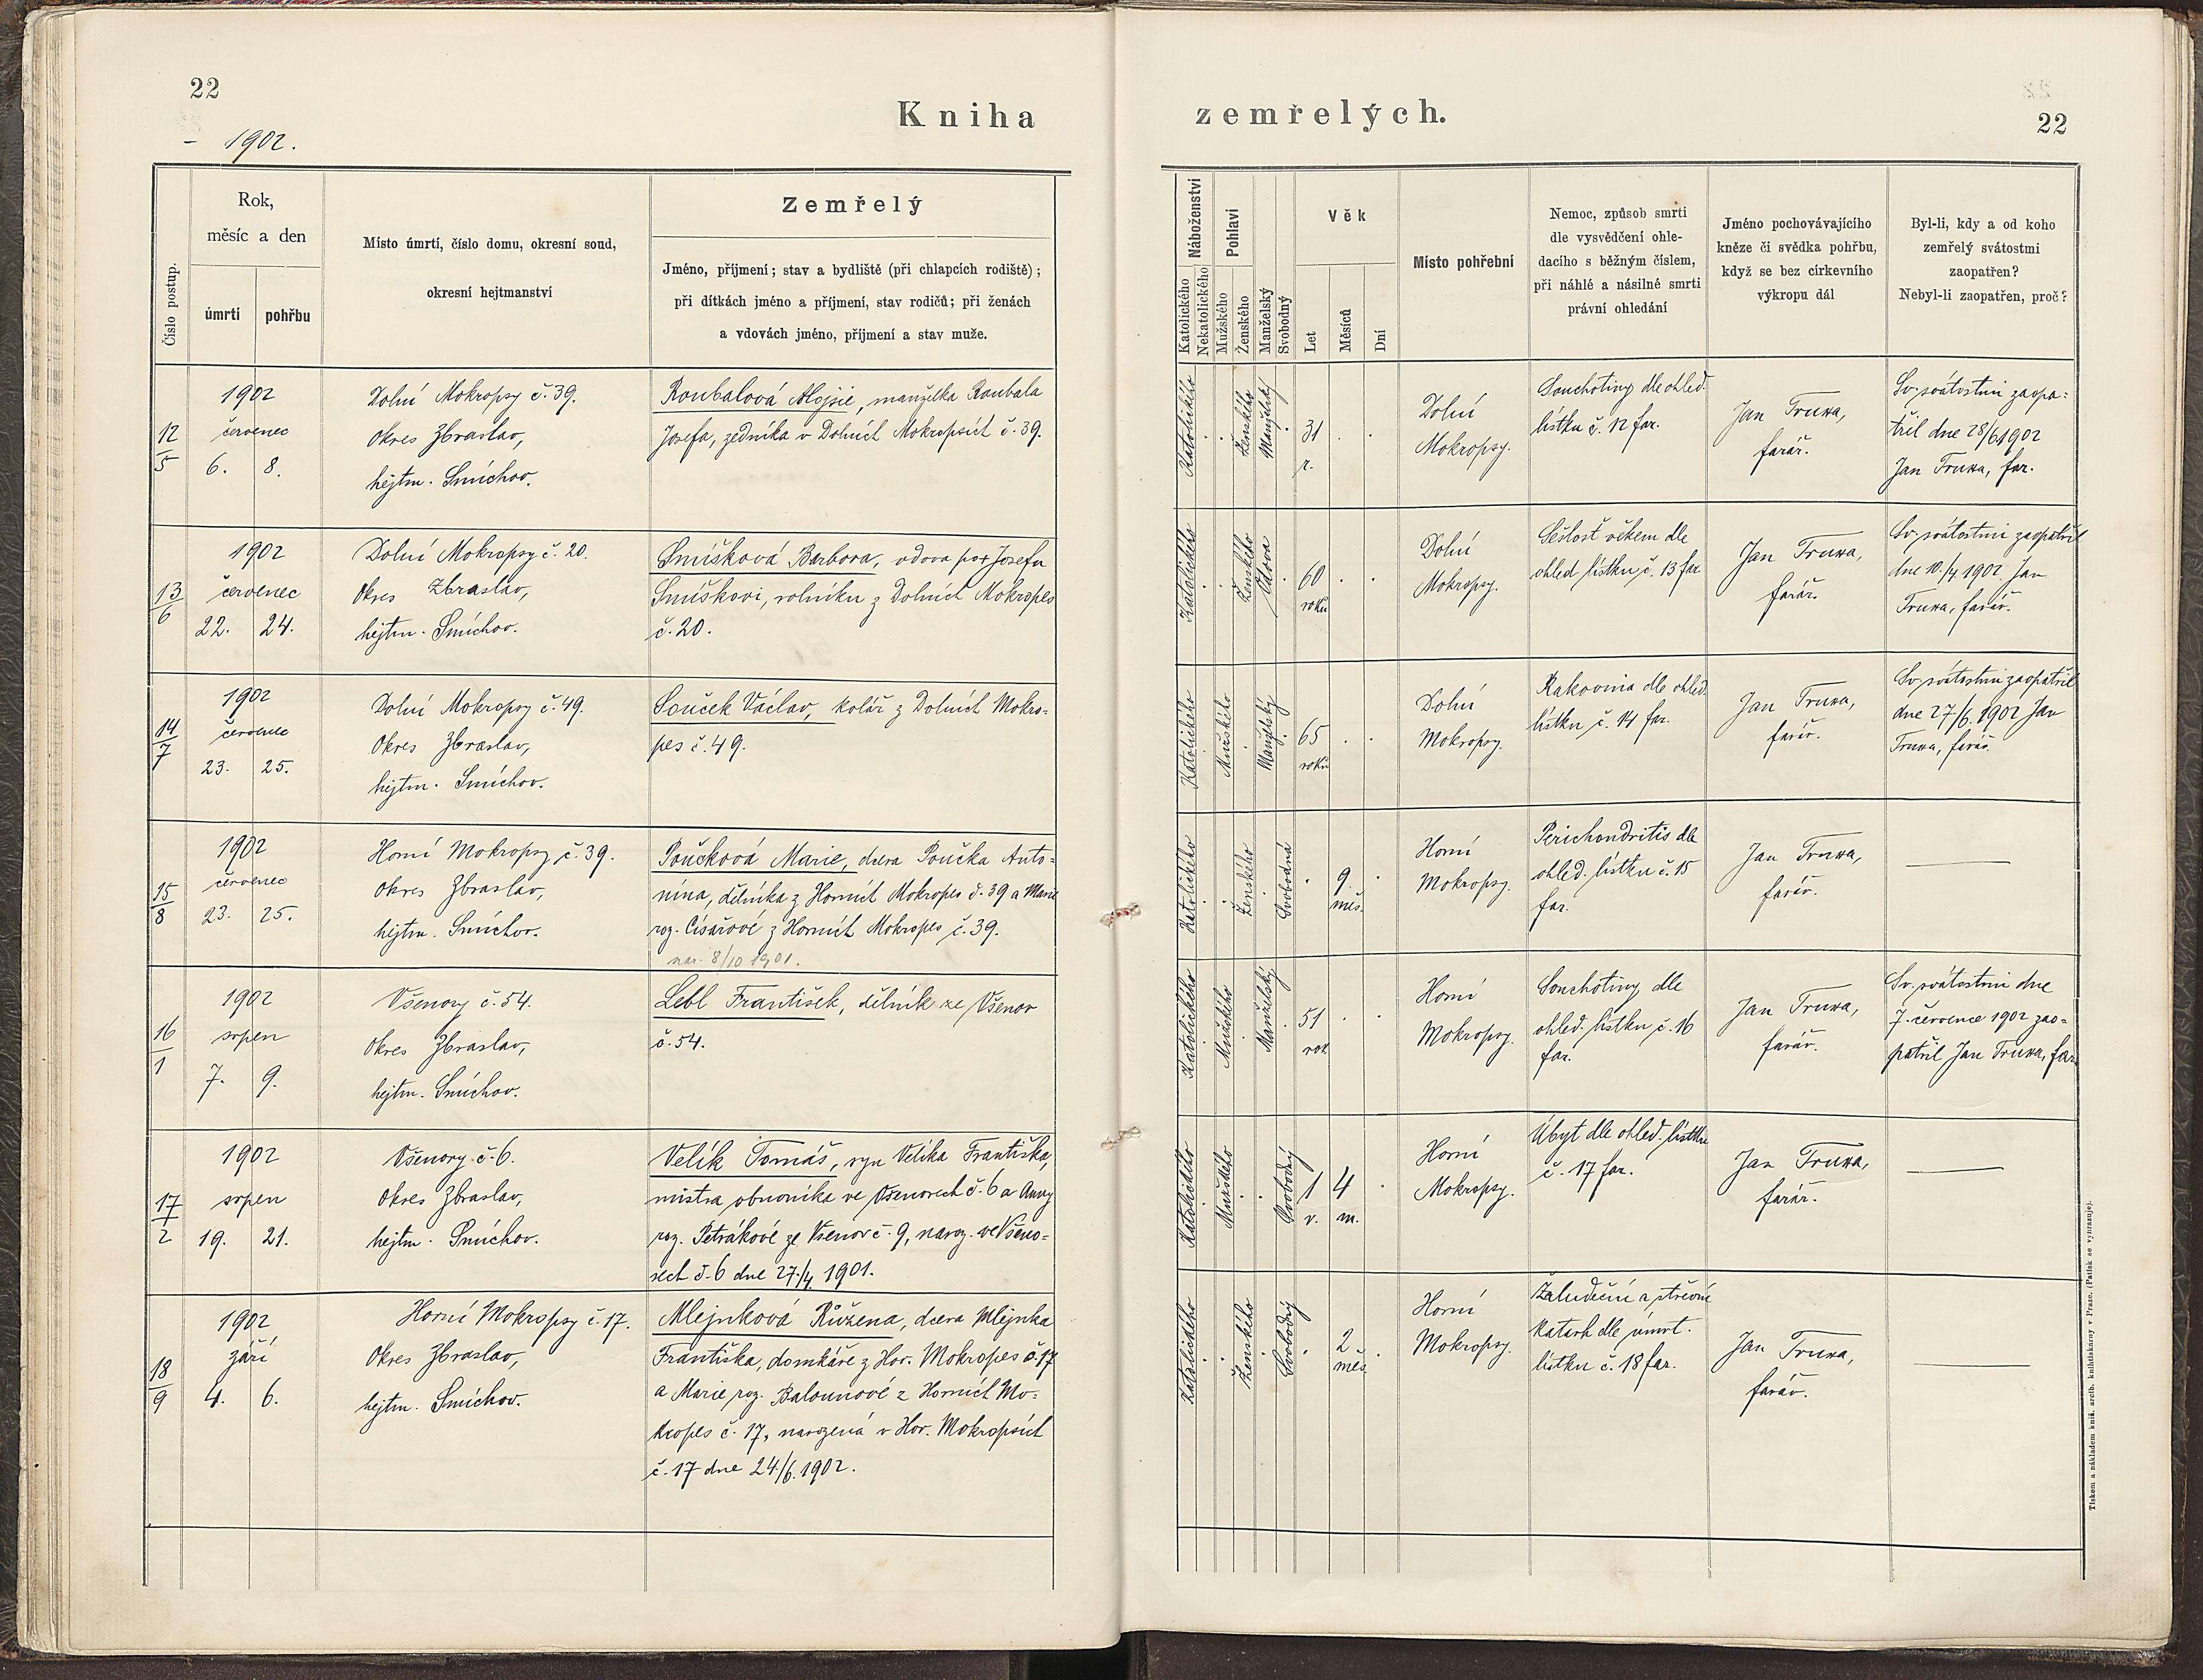 22
Kniha
zemřelých.
22
- 1902.
Číslo postup.
Rok,
měsíc a den
úmrtí
pohřbu
Místo úmrtí, číslo domu, okresní soud,
okresní hejtmanství
Zemřelý
Jméno, příjmení; stav a bydliště (při chlapcích rodiště);
při dítkách jméno a příjmení, stav rodičů; při ženách
a vdovách jméno, příjmení a stav muže.
Náboženství
Katolického
Nekatolického
Pohlaví
Mužského
Ženského
Manželský
Svobodný
Věk
Let
Měsíců
Dní
Místo pohřební
Nemoc, způsob smrti
dle vysvědčení ohle-
dacího s běžným číslem,
při náhlé a násilné smrti
právní ohledání
Jméno pochovávajícího
kněze či svědka pohřbu,
když se bez církevního
výkropu dál
Byl-li, kdy a od koho
zemřelý svátostmi
zaopatřen?
Nebyl-li zaopatřen, proč?
12
5
1902
červenec
6. 8.
Dolní Mokropsy č. 39.
Okres Zbraslav,
hejtm. Smíchov.
Roubalová Alojsie, manželka Roubala
Josefa, zedníka v Dolních Mokropsích č. 39.
Katolického
Ženského
Manželský
31
r.
Dolní
Mokropsy.
Souchotiny dle ohled.
lístku č. 12 far.
Jan Truxa,
farář.
Sv. svátostmi zaopa-
třil dne 28/6 1902
Jan Truxa, far.
13
6
1902
červenec
22. 24.
Dolní Mokropsy č. 20.
Okres Zbraslav,
hejtm. Smíchov.
Smíšková Barbora, vdova po Josefu
Smíškovi, rolníku z Dolních Mokropes
č. 20.
Katolického
Ženského
Vdova
60
roků
Dolní
Mokropsy.
Sešlost věkem dle
ohled. lístku č. 13 far.
Jan Truxa,
farář.
Sv. svátostmi zaopatřil
dne 10./4 1902 Jan
Truxa, farář.
14
7
1902
červenec
23. 25.
Dolní Mokropsy č. 49.
Okres Zbraslav,
hejtm. Smíchov.
Souček Václav, kolář z Dolních Mokro-
pes č. 49.
Katolického
Mužského
Manželský
65
roků
Dolní
Mokropsy.
Rakovina dle ohled.
lístku č. 14 far.
Jan Truxa,
farář.
Sv. svátostmi zaopatřil
dne 27/6. 1902 Jan
Truxa, farář.
15
8
1902
červenec
23. 25.
Horní Mokropsy č. 39.
Okres Zbraslav,
hejtm. Smíchov.
Poučková Marie, dcera Poučka Anto-
nína, dělníka z Horních Mokropes č. 39 a Marie
roz. Císařové z Horních Mokropes č. 39.
nar. 8/10 1901.
Katolického
Ženského
Svobodná
9
měs.
Horní
Mokropsy.
Perichondritis dle
ohled. lístku č. 15
far.
Jan Truxa,
farář.
16
1
1902
srpen
7. 9.
Všenory č. 54.
Okres Zbraslav,
hejtm. Smíchov.
Lebl František, dělník ze Všenor
č. 54.
Katolického
Mužského
Manželský
51
rok
Horní
Mokropsy.
Souchotiny dle
ohled. lístku č. 16
far.
Jan Truxa,
farář.
Sv. svátostmi dne
7. července 1902 zao-
patřil Jan Truxa, far.
17
2
1902
srpen
19. 21.
Všenory č. 6.
Okres Zbraslav,
hejtm. Smíchov.
Velík Tomáš, syn Velíka Františka,
mistra obuvníka ve Všenorech č. 6 a Anny
roz. Petrákové ze Všenor č. 9, naroz. ve Všeno-
rech č. 6 dne 27./4 1901.
Katolického
Mužského
Svobodný
1
r.
4
m.
Horní
Mokropsy.
Úbyt dle ohled. lístku
č. 17 far.
Jan Truxa,
farář.
18
9
1902
září
4. 6.
Horní Mokropsy č. 17.
Okres Zbraslav,
hejtm. Smíchov.
Mlejnková Růžena, dcera Mlejnka
Františka, domkáře z Hor. Mokropes č. 17
a Marie roz. Balounové z Horních Mo-
kropes č. 17, narozená v Hor. Mokropsích
č. 17 dne 24/6. 1902.
Katolického
Ženského
Svobodný
2
měs.
Horní
Mokropsy.
Žaludeční a střevní
katarh dle úmrt.
lístku č. 18 far.
Jan Truxa,
farář.
Tiskem a nákladem kníž. arcib. knihtiskárny v Praze. (Patisk se vyhrazuje).